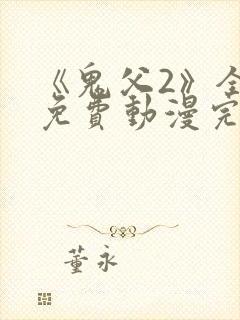 《鬼父2》全
免費動漫完
董永